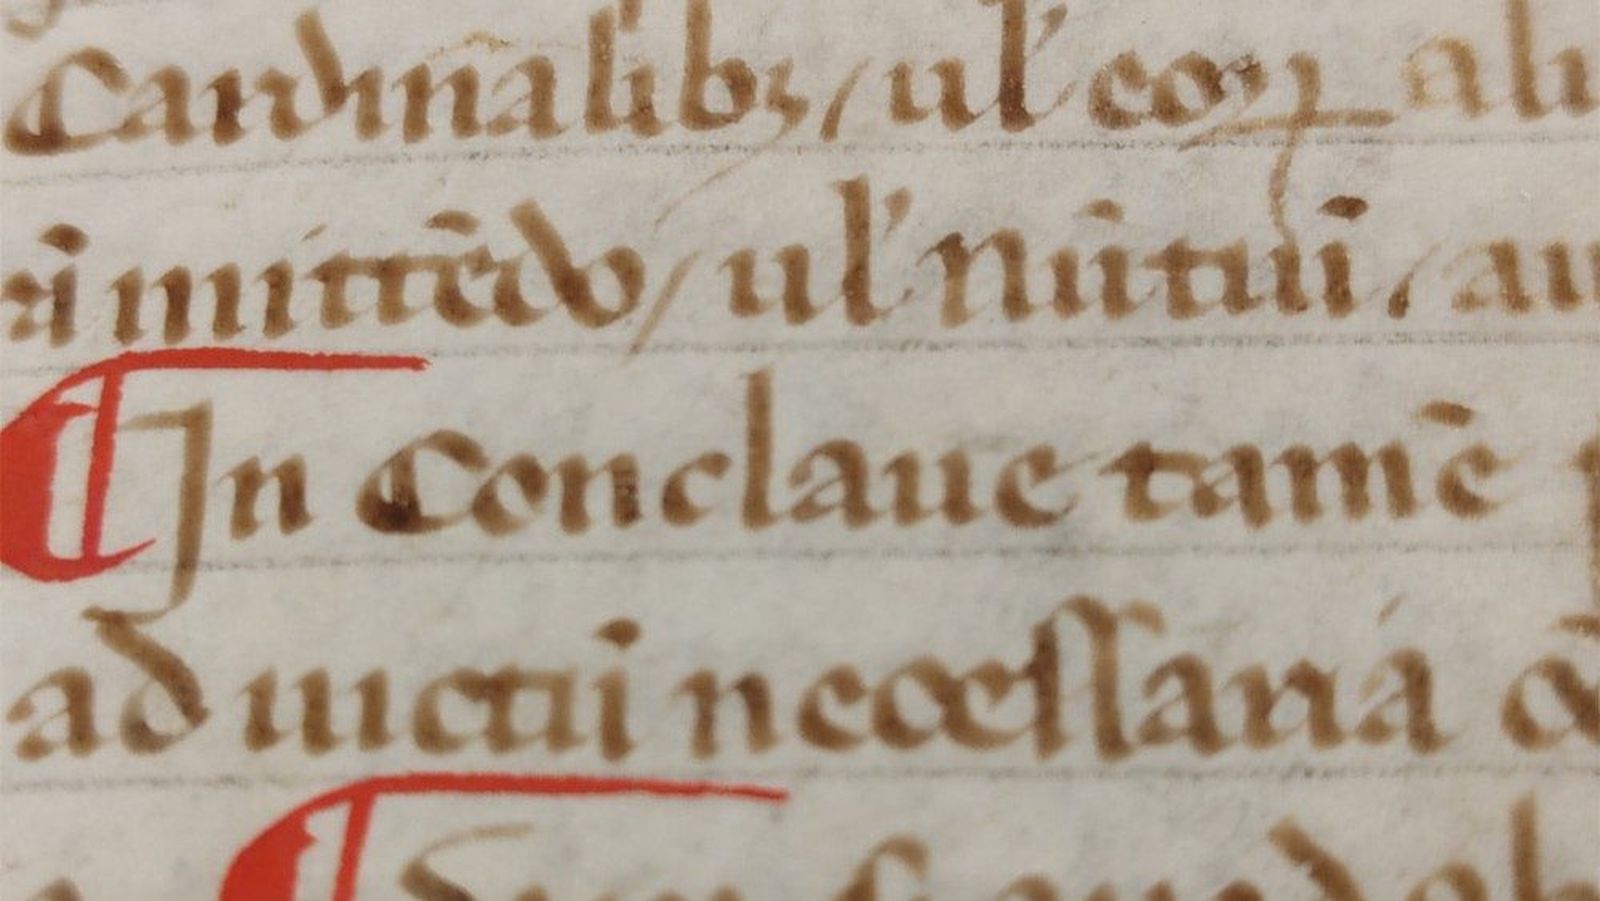 Cardinalibꝫ / ul' eoꝝ ali
ri mittēdo / ul' Nūtui, au
¶ In Conclaue tamē
ad uictū neceſſaria